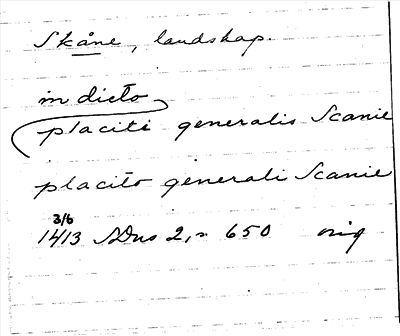 Skåne, landskap.
in dicto
placiti generalis Scanie
placito generali Scanie
3/6
1413 SDns 2, n 650 orig